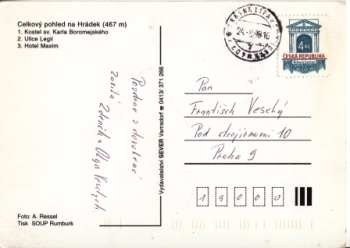 Celkový pohled na Hrádek (467 m)
1. Kostel sv. Karla Boromejského
2. Ulice Legií
3. Hotel Maxim
Pozdrav z dovolené
zasílá Zdeněk a Olga
Vydavatelství SEVER Varnsdorf ☎ 0413/371 296
Foto: A. Ressel
Tisk SOUP Rumburk
4 Kč
ČESKÁ REPUBLIKA
Pan
František Veselý
Pod strojírnami 10
Praha 9
19000